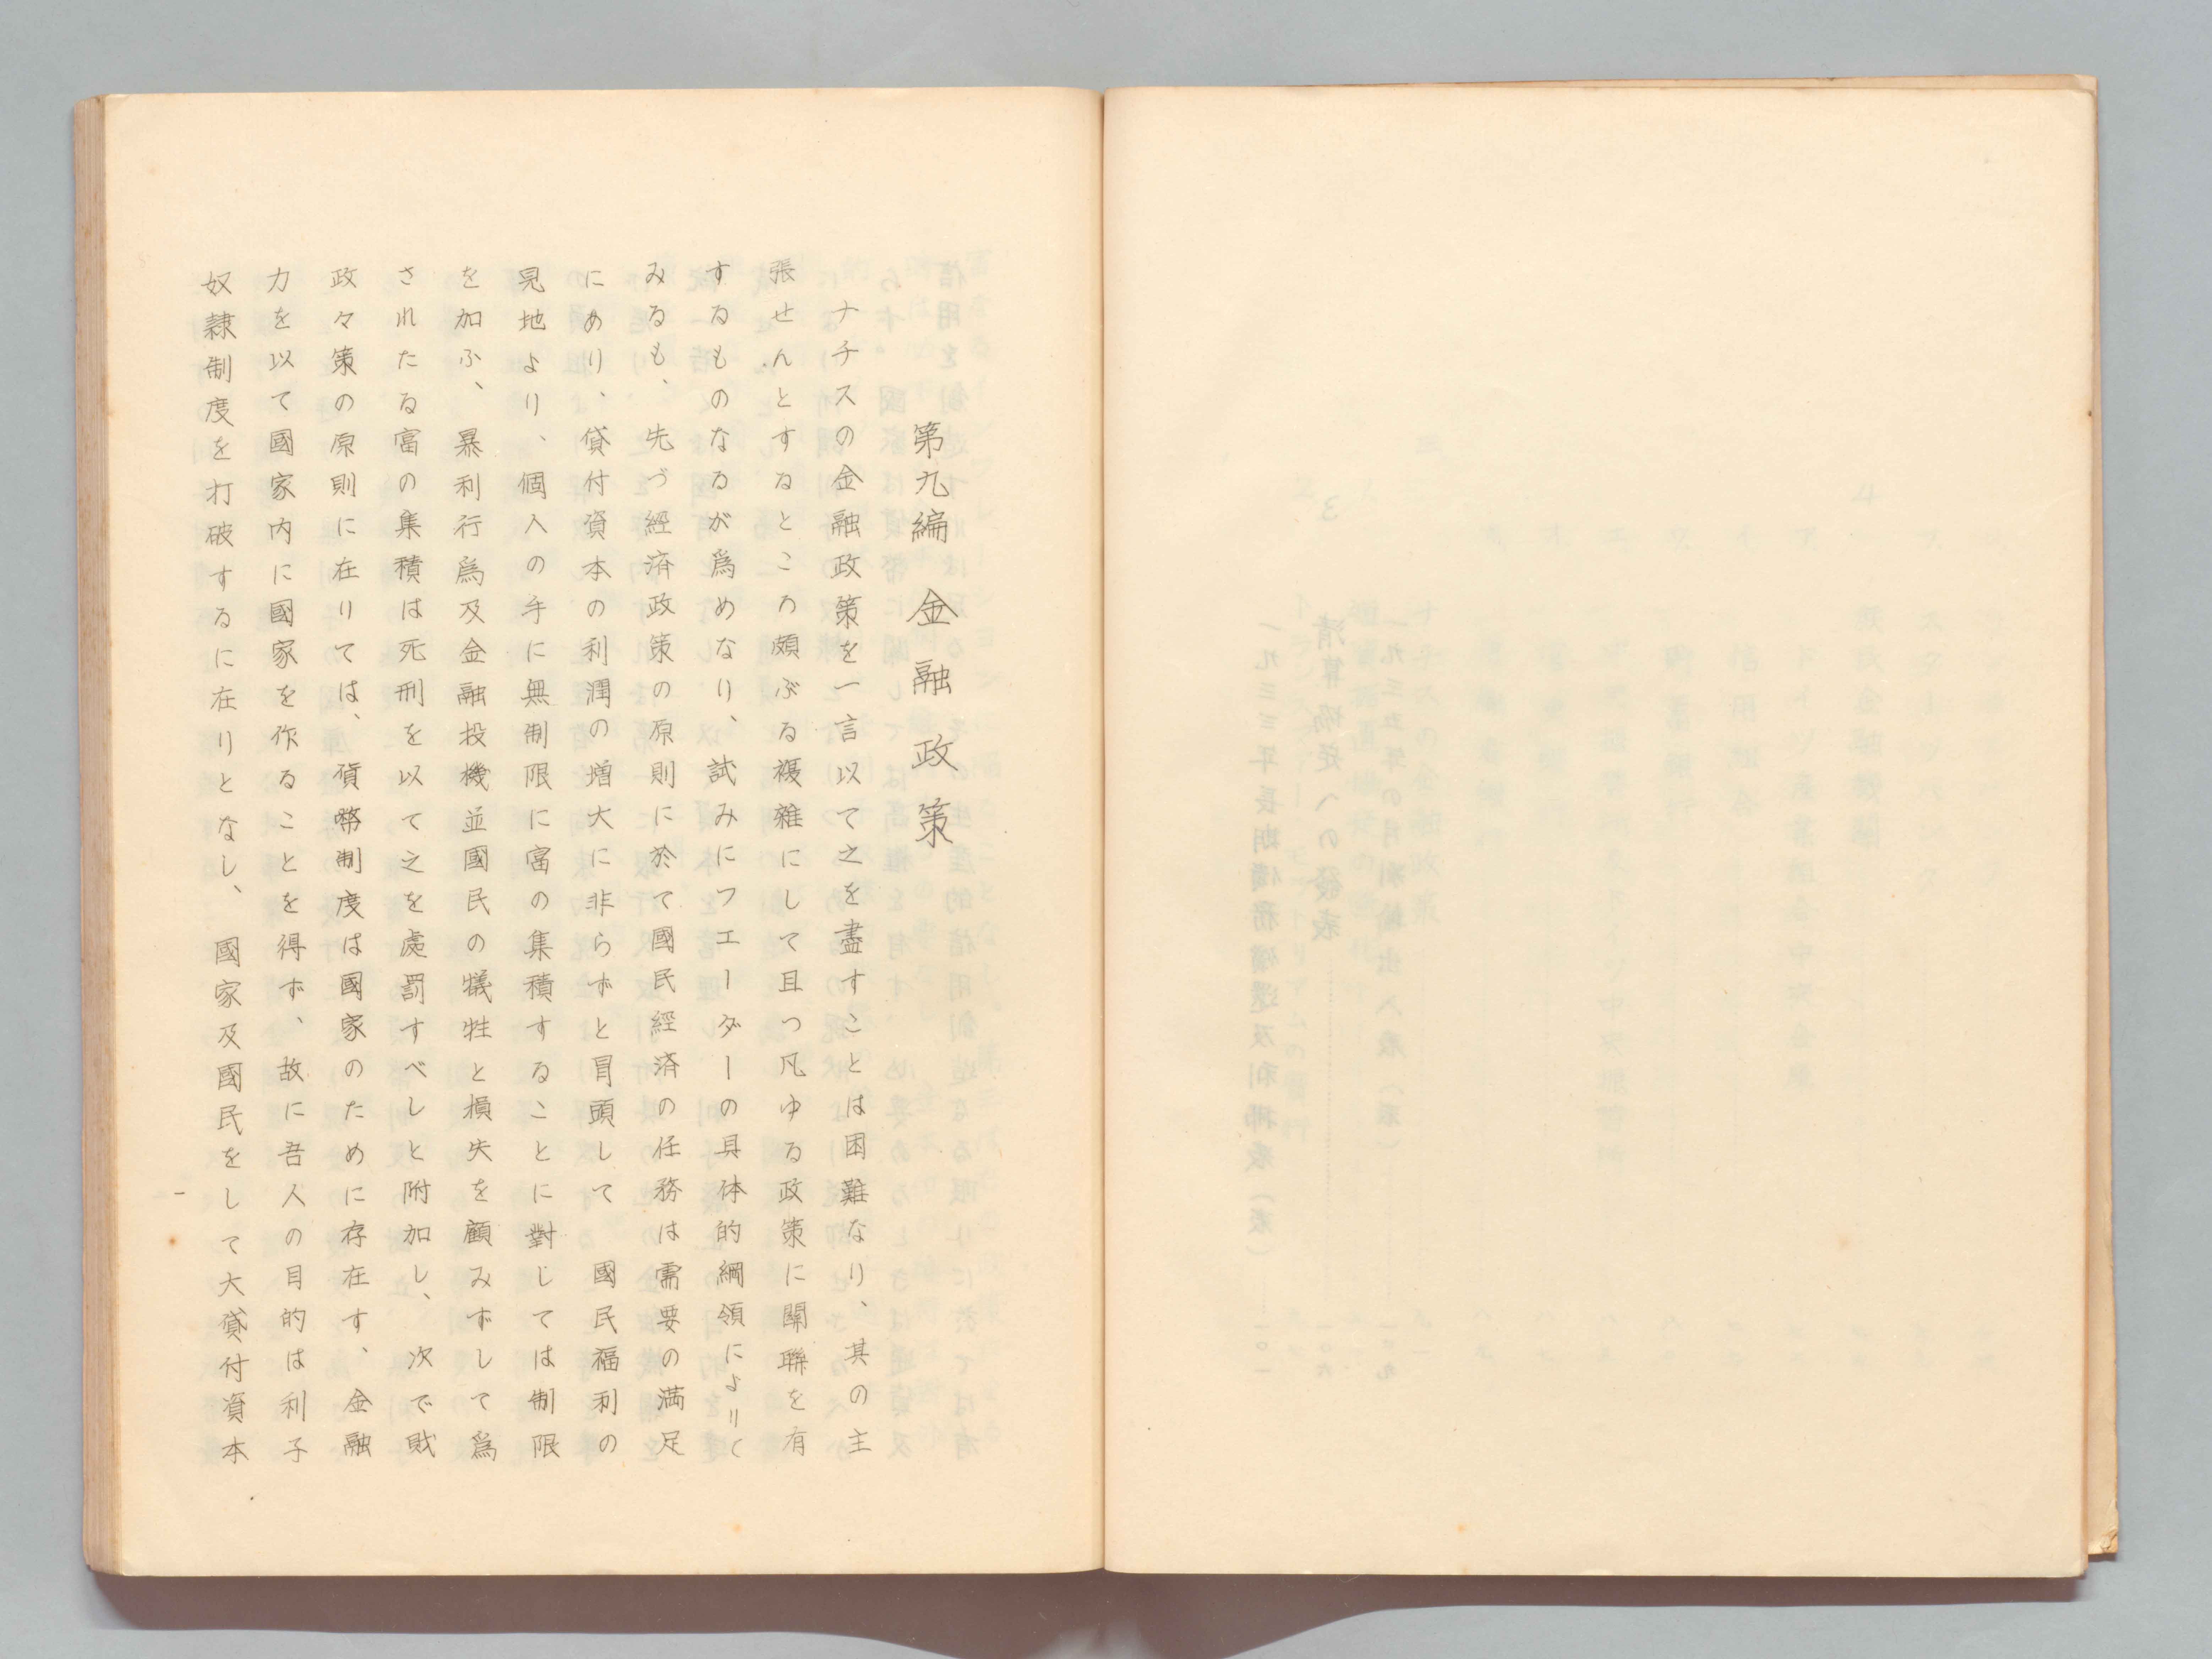 第九編　金融政策
ナチスの金融政策を一言以て之を盡すことは困難なり、其の主
張せんとするところ頗ぶる複雜にして且つ凡ゆる政策に關聯を有
するものなるが爲めなり、試みにフエーダーの具体的綱領によりく
みるも、先づ經済政策の原則に於て國民經済の任務は需要の満足
にあり、貸付資本の利潤の増大に非らずと冒頭して　國民福利の
見地より、個人の手に無制限に富の集積することに對しては制限
を加ふ、暴利行爲及金融投機並國民の犠牲と損失を顧みずして爲
されたる富の集積は死刑を以て之を處罰すべしと附加し、次で財
政々策の原則に在りては、貨幣制度は國家のために存在す、金融
力を以て國家内に國家を作ることを得ず、故に吾人の目的は利子
奴隷制度を打破するに在りとなし、國家及國民をして大貸付資本
一